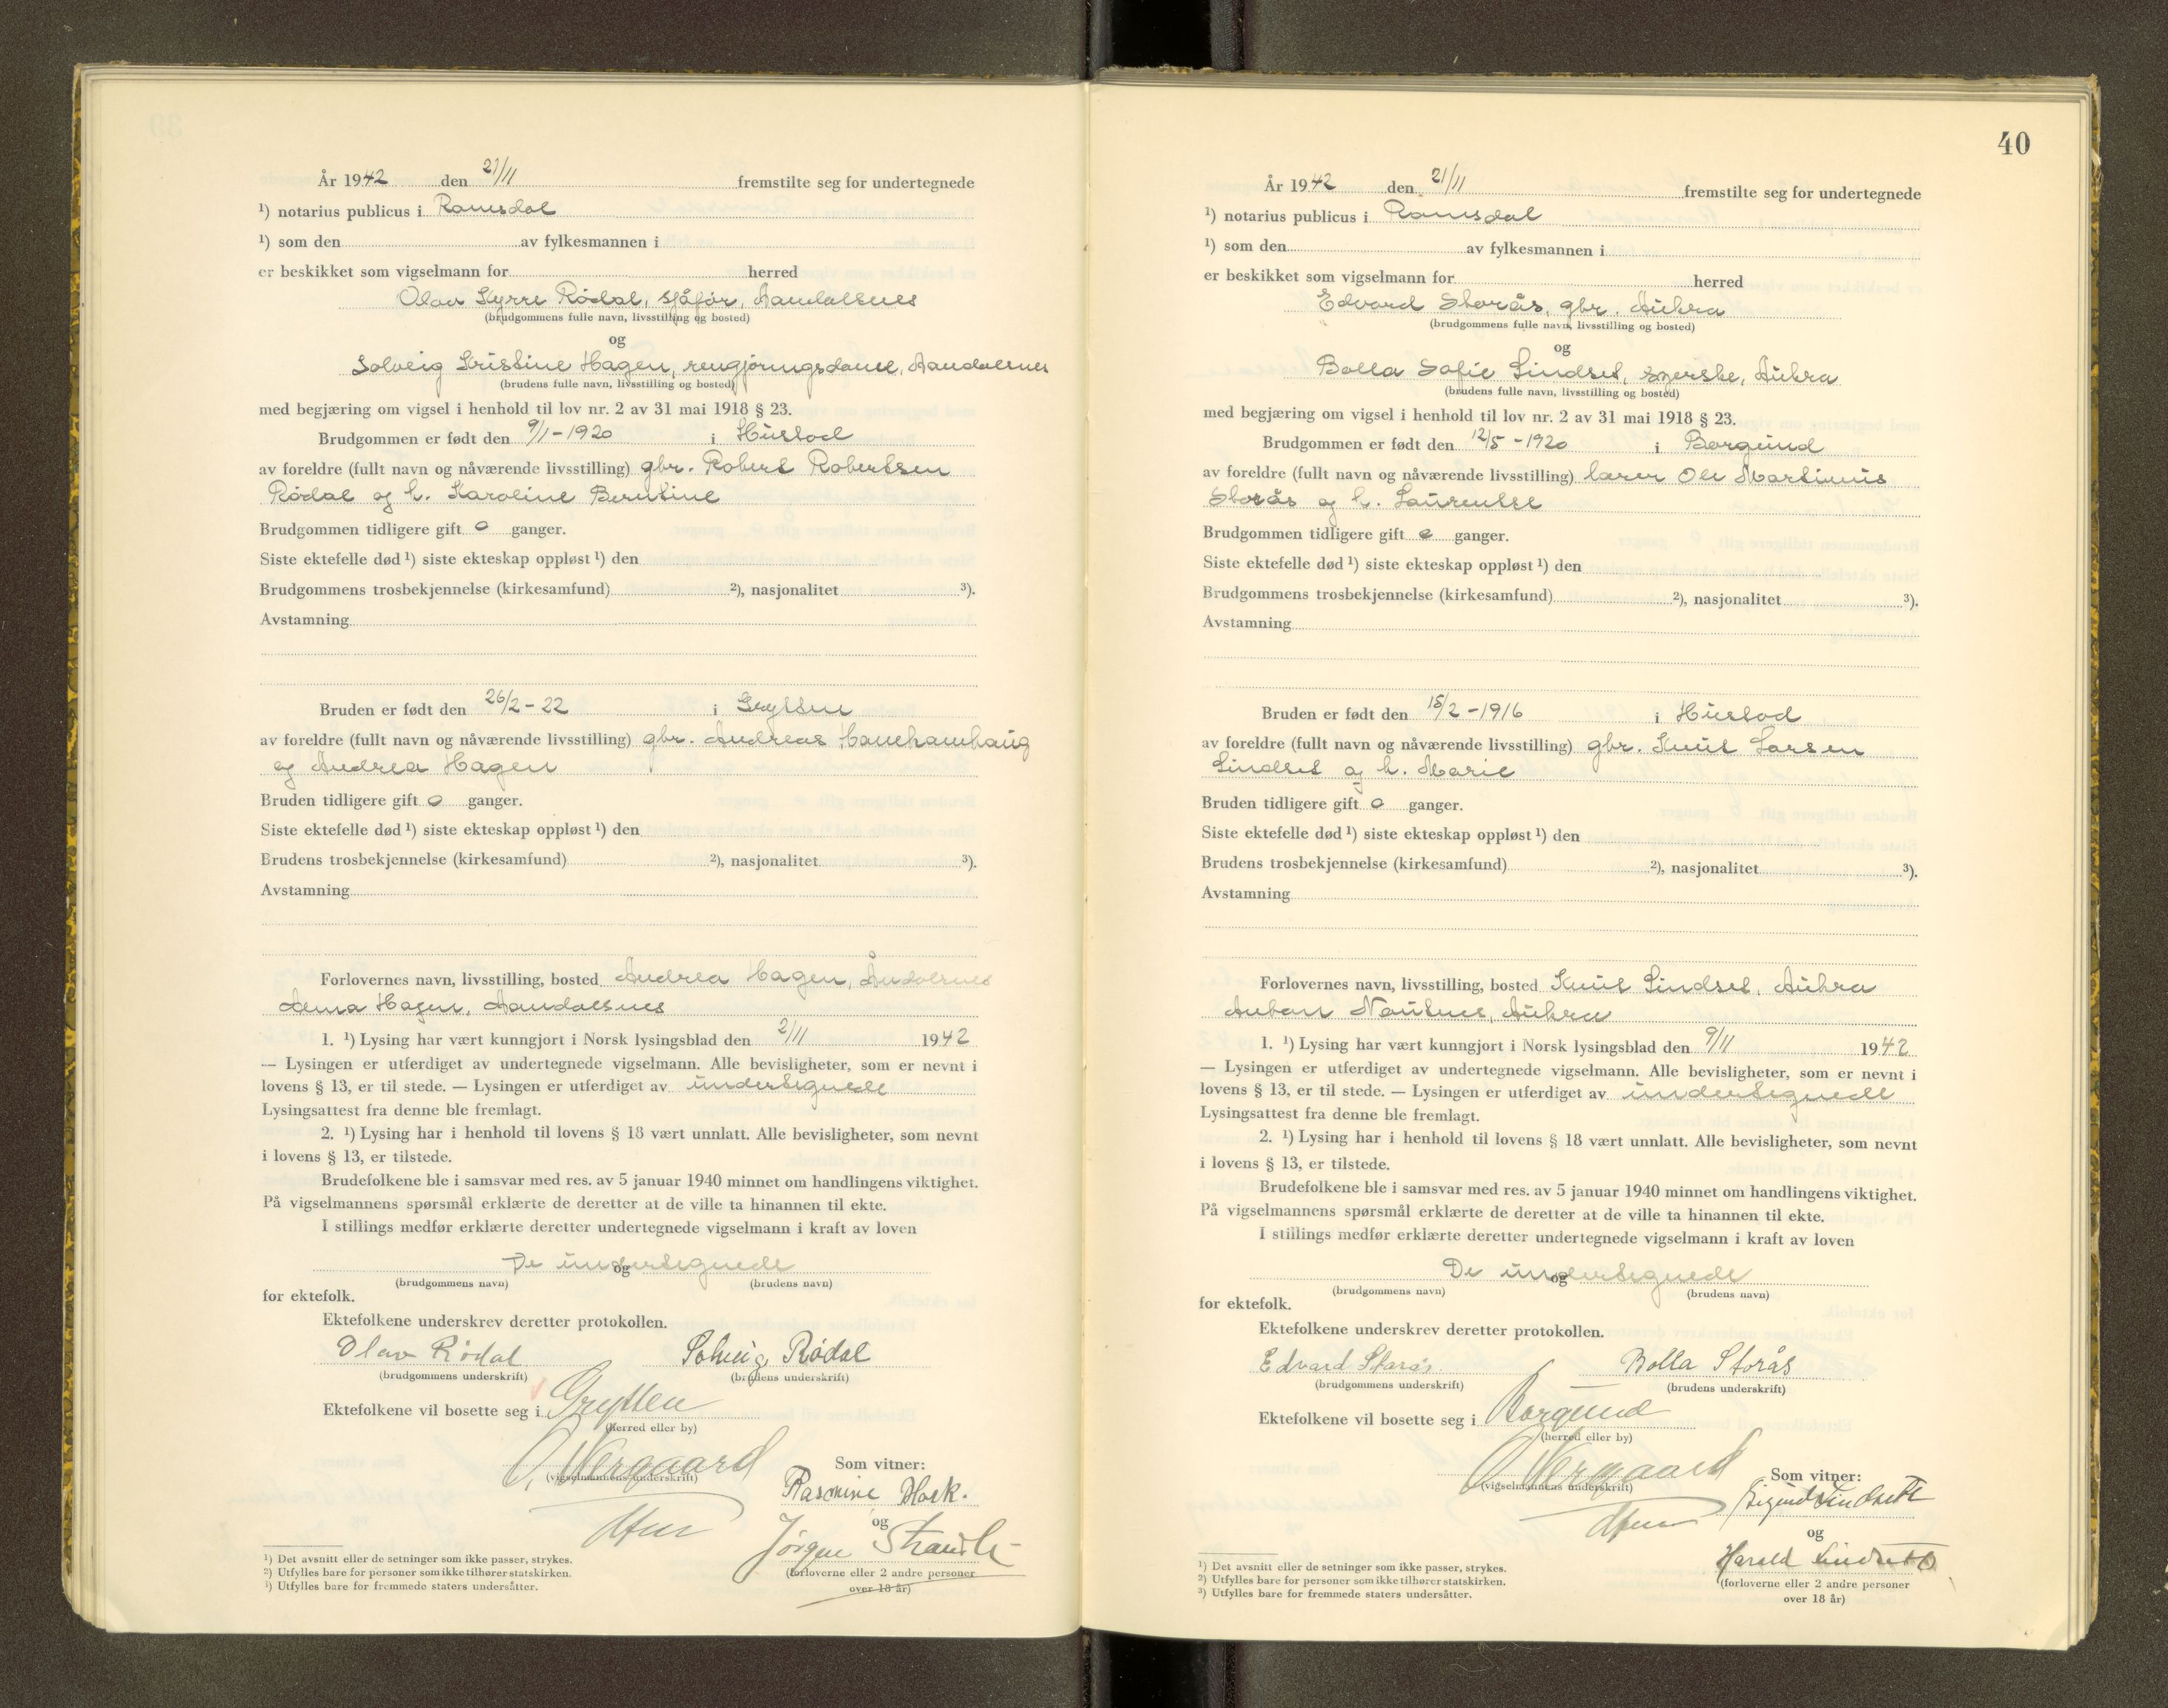 År 1942 den 21/11 fremstilte seg for undertegnede
¹) notarius publicus i Romsdal
¹) som den av fylkesmannen i
er beskikket som vigselmann for herred
Olav Kyrre Rødal, sjåfør, Aandalsnes
(brudgommens fulle navn, livsstilling og bosted)
og
Solveig Kristine Hagen, rengjøringsdame, Aandalsnes
(brudens fulle navn, livsstilling og bosted)
med begjæring om vigsel i henhold til lov nr. 2 av 31 mai 1918 § 23.
Brudgommen er født den 9/1-1920 i Hustad
av foreldre (fullt navn og nåværende livsstilling) gbr. Robert Robertsen
Rødal og h. Karoline Berntine
Brudgommen tidligere gift 0 ganger.
Siste ektefelle død ¹) siste ekteskap oppløst ¹) den
Brudgommens trosbekjennelse (kirkesamfund) ²), nasjonalitet ³).
Avstamning
Bruden er født den 26/2-22 i Grytten
av foreldre (fullt navn og nåværende livsstilling) gbr. Andreas
og Andrea Hagen
Bruden tidligere gift 0 ganger.
Siste ektefelle død ¹) siste ekteskap oppløst ¹) den
Brudens trosbekjennelse (kirkesamfund) ²), nasjonalitet ³).
Avstamning
Forlovernes navn, livsstilling, bosted Andrea Hagen, Åndalsnes
Anna Hagen, Aandalsnes
1. ¹) Lysing har vært kunngjort i Norsk lysingsblad den 2/11 1942
— Lysingen er utferdiget av undertegnede vigselmann. Alle bevisligheter, som er nevnt i
lovens § 13, er til stede. — Lysingen er utferdiget av undertegnede
Lysingsattest fra denne ble fremlagt.
2. ¹) Lysing har i henhold til lovens § 18 vært unnlatt. Alle bevisligheter, som nevnt
i lovens § 13, er tilstede.
Brudefolkene ble i samsvar med res. av 5 januar 1940 minnet om handlingens viktighet.
På vigselmannens spørsmål erklærte de deretter at de ville ta hinannen til ekte.
I stillings medfør erklærte deretter undertegnede vigselmann i kraft av loven
De undertegnede
og
(brudgommens navn) (brudens navn)
for ektefolk.
Ektefolkene underskrev deretter protokollen.
Olav Rødal Solveig Rødal
(brudgommens underskrift) (brudens underskrift)
Ektefolkene vil bosette seg i Grytten
(herred eller by)
O. Wergaard
(vigselmannens underskrift)
Som vitner:
Rasmine Hoek.
og
Jørgen
(forloverne eller 2 andre personer
over 18 år)
¹) Det avsnitt eller de setninger som ikke passer, strykes.
²) Utfylles bare for personer som ikke tilhører statskirken.
³) Utfylles bare for fremmede staters undersåtter.
40
År 1942 den 21/11 fremstilte seg for undertegnede
¹) notarius publicus i Romsdal
¹) som den av fylkesmannen i
er beskikket som vigselmann for herred
Edvard Storås, gbr. Aukra
(brudgommens fulle navn, livsstilling og bosted)
og
Bolla Sofie Lindset, syerske, Aukra
(brudens fulle navn, livsstilling og bosted)
med begjæring om vigsel i henhold til lov nr. 2 av 31 mai 1918 § 23.
Brudgommen er født den 12/5-1920 i Borgund
av foreldre (fullt navn og nåværende livsstilling) lærer Ole Martinus
Storås og h. Laurentse
Brudgommen tidligere gift 0 ganger.
Siste ektefelle død ¹) siste ekteskap oppløst ¹) den
Brudgommens trosbekjennelse (kirkesamfund) ²), nasjonalitet ³).
Avstamning
Bruden er født den 15/2-1916 i Hustad
av foreldre (fullt navn og nåværende livsstilling) gbr. Knut Larsen
Lindset og h. Marie
Bruden tidligere gift 0 ganger.
Siste ektefelle død ¹) siste ekteskap oppløst ¹) den
Brudens trosbekjennelse (kirkesamfund) ²), nasjonalitet ³).
Avstamning
Forlovernes navn, livsstilling, bosted Knut Lindset, Aukra
Anton Nautnes, Aukra
1. ¹) Lysing har vært kunngjort i Norsk lysingsblad den 9/11 1942
— Lysingen er utferdiget av undertegnede vigselmann. Alle bevisligheter, som er nevnt i
lovens § 13, er til stede. — Lysingen er utferdiget av undertegnede
Lysingsattest fra denne ble fremlagt.
2. ¹) Lysing har i henhold til lovens § 18 vært unnlatt. Alle bevisligheter, som nevnt
i lovens § 13, er tilstede.
Brudefolkene ble i samsvar med res. av 5 januar 1940 minnet om handlingens viktighet.
På vigselmannens spørsmål erklærte de deretter at de ville ta hinannen til ekte.
I stillings medfør erklærte deretter undertegnede vigselmann i kraft av loven
De undertegnede
og
(brudgommens navn) (brudens navn)
for ektefolk.
Ektefolkene underskrev deretter protokollen.
Edvard Storås Bolla Storås
(brudgommens underskrift) (brudens underskrift)
Ektefolkene vil bosette seg i Borgund
(herred eller by)
O. Wergaard
(vigselmannens underskrift)
Som vitner:
Sigurd Lindseth
og
Harald Lindseth
(forloverne eller 2 andre personer
over 18 år)
¹) Det avsnitt eller de setninger som ikke passer, strykes.
²) Utfylles bare for personer som ikke tilhører statskirken.
³) Utfylles bare for fremmede staters undersåtter.